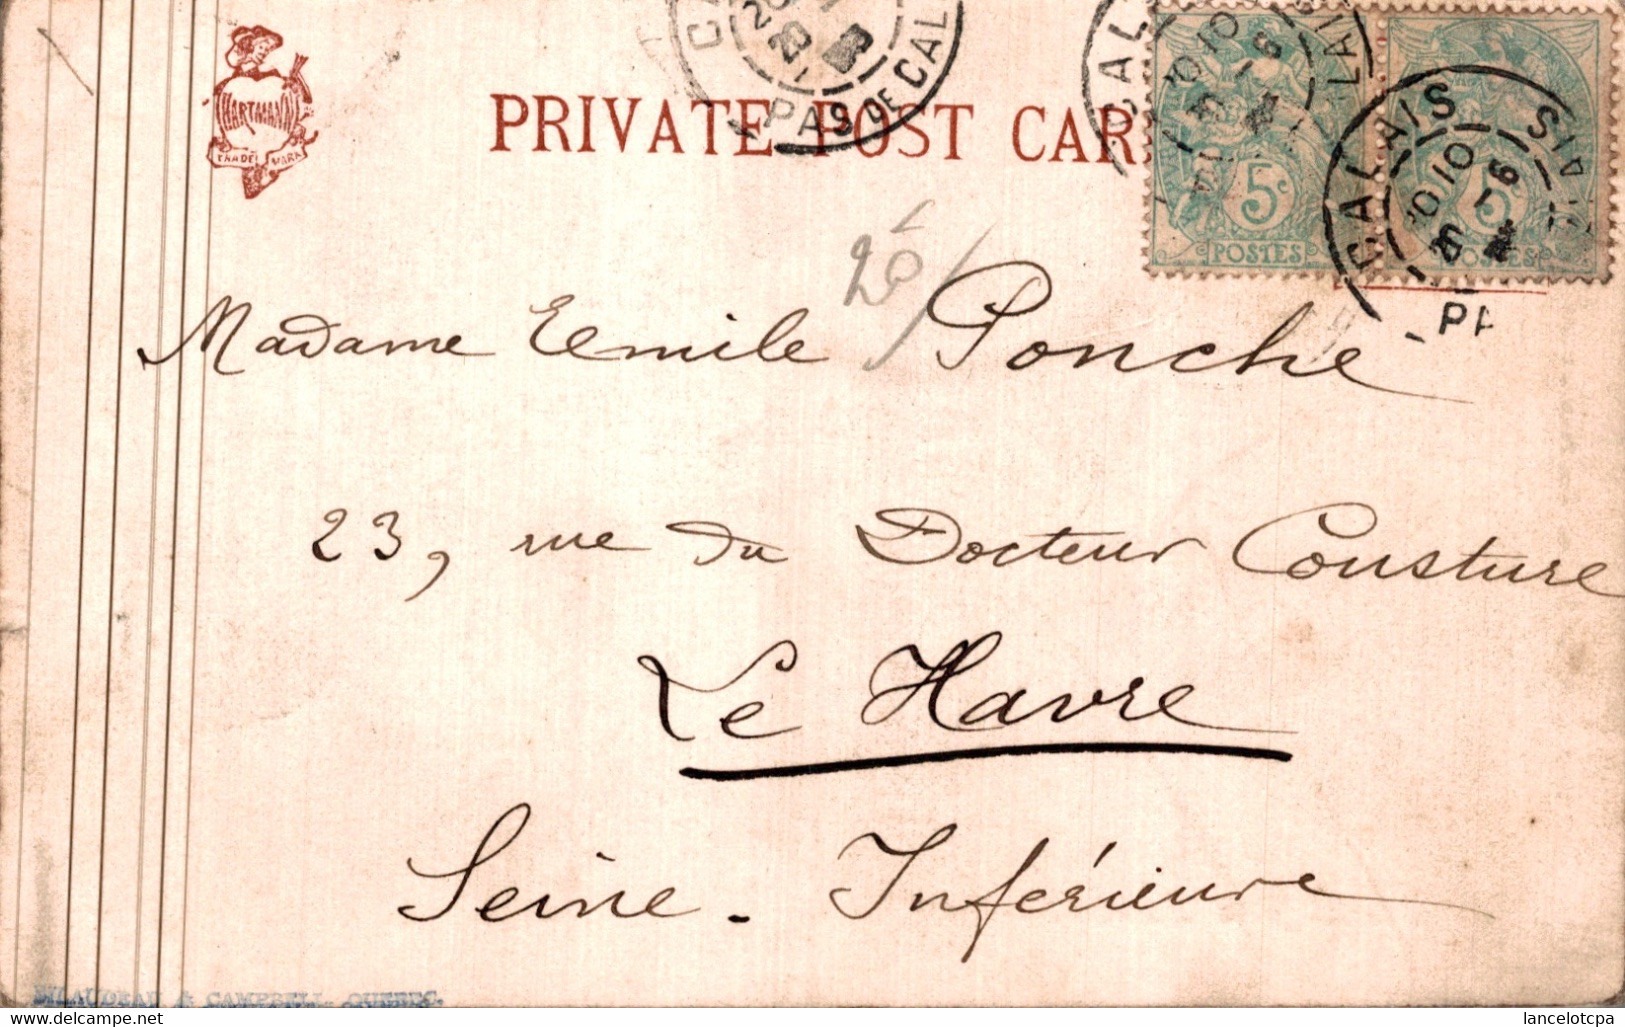 HARTMANN
TRADE MARK
PRIVATE POST CAR
CALAIS
PAS DE CAL
5c
POSTES
5
POSTES
26
Madame Emile Ponche
23, rue du Docteur Cousture
Le Havre
Seine - Inférieure
& CAMPBELL, QUEBEC.
lancelotcpa
delcampe.net